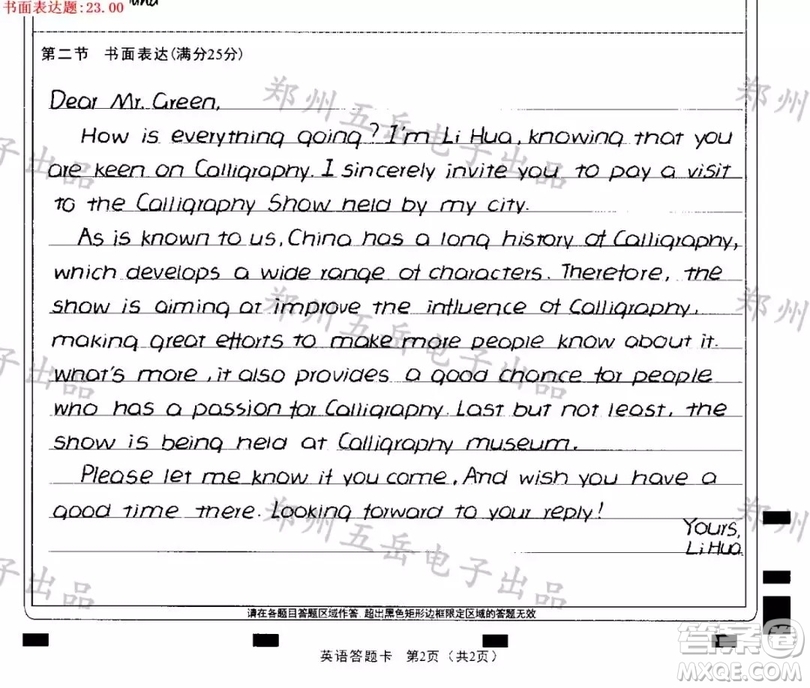 书面表达题:23.00
第二节 书面表达(满分25分)
Dear Mr. Green,
How is everything going? I'm Li Hua, knowing that you
are keen on Calligraphy. I sincerely invite you to pay a visit
to the Calligraphy Show held by my city.
As is known to us, China has a long history of Calligraphy,
which develops a wide range of characters. Therefore, the
show is aiming at improve the influence of Calligraphy,
making great efforts to make more people know about it.
What's more, it also provides a good chance for people
who has a passion for Calligraphy. Last but not least, the
show is being held at Calligraphy museum.
Please let me know if you come, And wish you have a
good time there. Looking forward to your reply!
Yours,
Li Hua.
请在各题目答题区域作答,超出黑色矩形边框限定区域的答题无效
英语答题卡 第2页(共2页)
郑州五岳电子出品
郑州五岳电子出品
答案圈
MXQE.COM